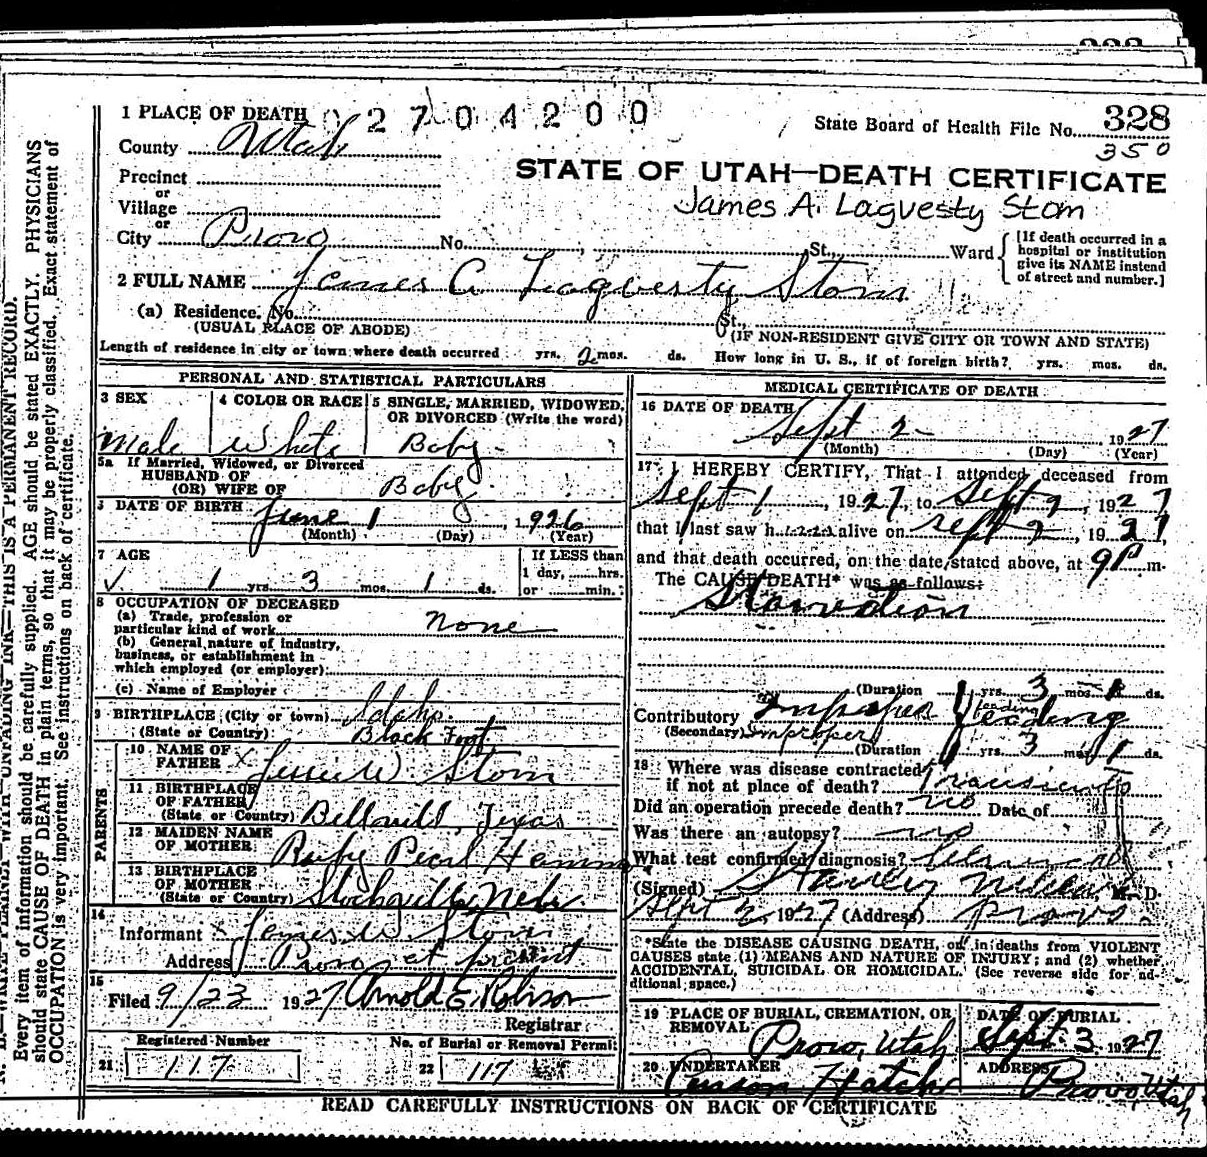 328
1 PLACE OF DEATH
02704200
State Board of Health File No. 328
350
County Utah
STATE OF UTAH—DEATH CERTIFICATE
Precinct
or
Village
James A. Laguesty Stom
or
City Provo No. , St., Ward
[If death occurred in a hospital or institution give its NAME instead of street and number.]
2 FULL NAME James A Laguesty Stom
(a) Residence. No. St.,
(USUAL PLACE OF ABODE) (IF NON-RESIDENT GIVE CITY OR TOWN AND STATE)
Length of residence in city or town where death occurred yrs. 2 mos. ds. How long in U. S., if of foreign birth? yrs. mos. ds.
PERSONAL AND STATISTICAL PARTICULARS
3 SEX 4 COLOR OR RACE 5 SINGLE, MARRIED, WIDOWED, OR DIVORCED (Write the word)
Male White Baby
5a If Married, Widowed, or Divorced
HUSBAND OF
(OR) WIFE OF Baby
DATE OF BIRTH June 1, 1926
(Month) (Day) (Year)
7 AGE If LESS than
1 yrs. 3 mos. 1 ds. 1 day, hrs.
or min.
8 OCCUPATION OF DECEASED
(a) Trade, profession or
particular kind of work None
(b) General nature of industry,
business, or establishment in
which employed (or employer)
(c) Name of Employer
9 BIRTHPLACE (City or town) Idaho
(State or Country) Black Foot
PARENTS
10 NAME OF
FATHER Stom
11 BIRTHPLACE
OF FATHER
(State or Country) Texas
12 MAIDEN NAME
OF MOTHER Ruby Pearl
13 BIRTHPLACE
OF MOTHER
(State or Country) Stockville Nebr
14
Informant James W. Stom
Address Provo at present
15
Filed 9/23 1927 Arnold E. Robison
Registrar
Registered Number No. of Burial or Removal Permit
21 117 22 117
MEDICAL CERTIFICATE OF DEATH
16 DATE OF DEATH
Sept 2 1927
(Month) (Day) (Year)
17 I HEREBY CERTIFY, That I attended deceased from
Sept 1, 1927, to Sept 2, 1927
that I last saw h alive on Sept 2, 1927,
and that death occurred, on the date stated above, at 9P m.
The CAUSE DEATH* was as follows:
Starvation
(Duration 1 yrs. 3 mos. 1 ds.
Contributory Improper feeding feeding
(Secondary) Improper
(Duration 1 yrs. 3 mos. 1 ds.
18 Where was disease contracted
if not at place of death? Transients
Did an operation precede death? no Date of
Was there an autopsy? no
What test confirmed diagnosis? Clinical
(Signed) Stanley M. D.
Sept 2, 1927 (Address) Provo
*State the DISEASE CAUSING DEATH, or in deaths from VIOLENT
CAUSES state (1) MEANS AND NATURE OF INJURY; and (2) whether
ACCIDENTAL, SUICIDAL OR HOMICIDAL. (See reverse side for additional space.)
19 PLACE OF BURIAL, CREMATION, OR REMOVAL DATE OF BURIAL
Provo, Utah Sept. 3 1927
20 UNDERTAKER ADDRESS
Hatch Provo Utah
READ CAREFULLY INSTRUCTIONS ON BACK OF CERTIFICATE
N. B.—WRITE PLAINLY WITH UNFADING INK—THIS IS A PERMANENT RECORD.
Every item of information should be carefully supplied. AGE should be stated EXACTLY. PHYSICIANS
should state CAUSE OF DEATH in plain terms, so that it may be properly classified. Exact statement of
OCCUPATION is very important. See instructions on back of certificate.